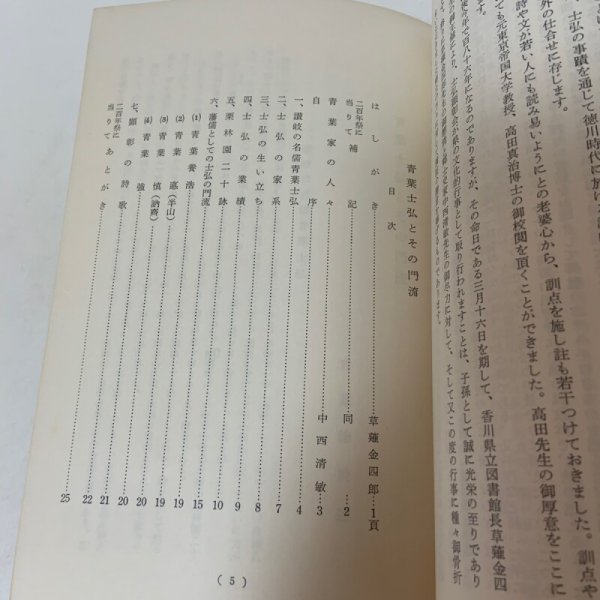 、士弘の事蹟を通じて徳川時代に於け
外の仕合せに存じます。
詩や文が若い人にも読み易いようにとの老婆心から、訓点を施し註も若干つけておきました。訓点や
ても元東京帝国大学教授、高田真治博士の御校閲を頂くことができました。高田先生の御厚意をここに
ます。
年で百八十六年になるのでありますが、その命日である三月十六日を期して、香川県立図書館長草薙金四
文化的行事として取り行われますことは、子孫として誠に光栄の至りであり
中西清敏先生の御尽力に対して、そして又この度の行事に種々御骨折
青葉士弘とその門流
目次
はしがき 草薙金四郎 1頁
二百年祭に当りて 補記 同 2
青葉家の人々 中西清敏 3
自序 4
一、讃岐の名儒青葉士弘 7
二、士弘の家系 8
三、士弘の生い立ち 9
四、士弘の業績 10
五、栗林園二十詠 15
六、藩儒としての士弘の門流 19
(1) 青葉養浩 19
(2) 青葉寔(半山) 20
(3) 青葉慎(訥斎) 20
(4) 青葉強 21
七、顕彰の詩歌 22
二百年祭に当りてあとがき 25
(5)